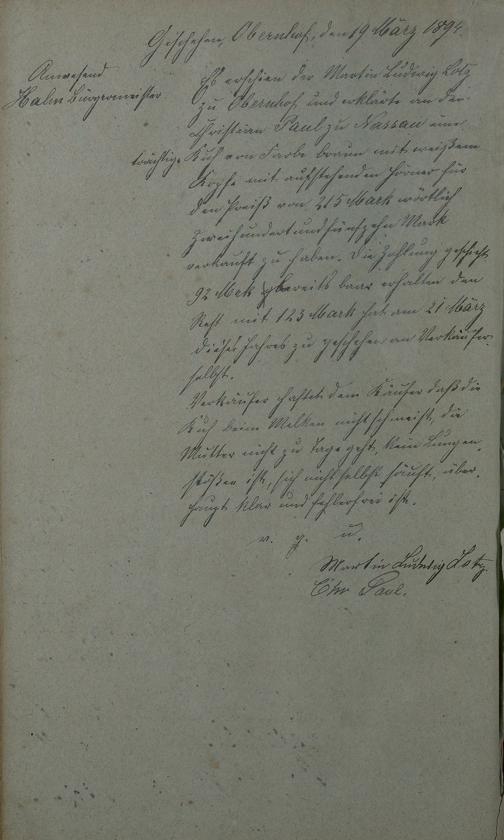 Geschehen, Obernhof, den 19 März 1894.
Anwesend
Halm Bürgermeister
Es erschien der Martin Ludwig Lotz
zu Obernhof und erklärte an den
Christian Paul zu Nassau eine
trächtige Kuh von Farbe braun mit weißem
Kopfe mit aufstehenden Hörner für
den Preiß von 215 Mark wörtlich
Zweihundertundfünfzehn Mark
verkauft zu haben. Die Zahlung geschieht
92 Mrk bereits baar erhalten den
Rest mit 123 Mark hat am 21 März
dieses Jahres zu geschehen, an Verkäufer
selbst.
Verkäufer haftet dem Käufer daß die
Kuh beim Melken nicht schmeißt, die
Mutter nicht zu Tage geht, kein Lungen-
stößer ist, sich nicht selbst säuft, über-
haupt klar und fehlerfrei ist.
v. g. u.
Martin Ludwig Lotz
Chr Paul.